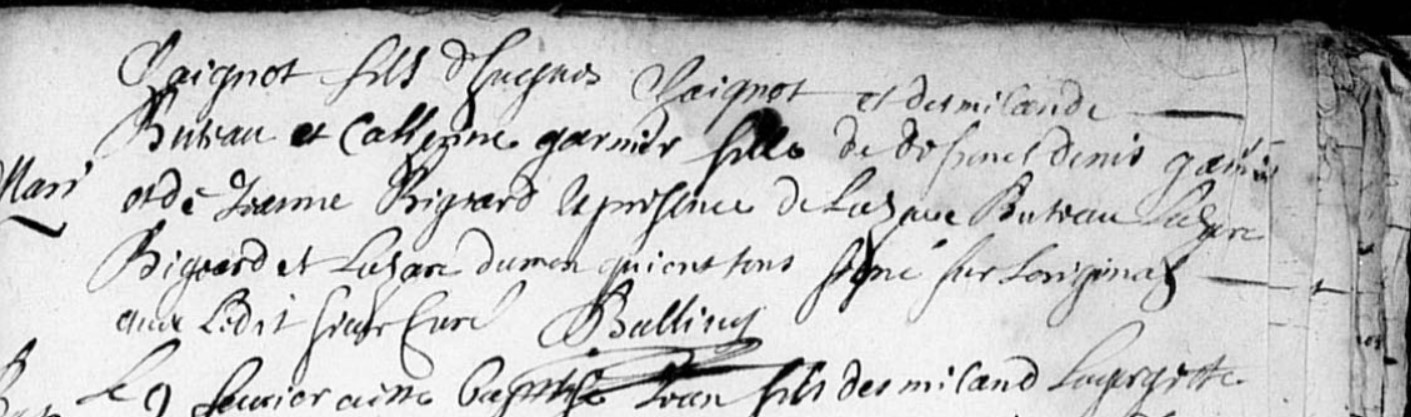 Loignot fils d'hugues Loignot et desmilande
Buteau et Catherine garnier fille de defunct denis garnier
Mari et de Jeanne Bigeard en presence de Lazare Buteau Lazare
Bigeard et Lazare dumon qui ont tous signé sur Loriginal
avec Ledit sieur Curé
Le 9 feurier a esté baptisé Jean fils desmiland